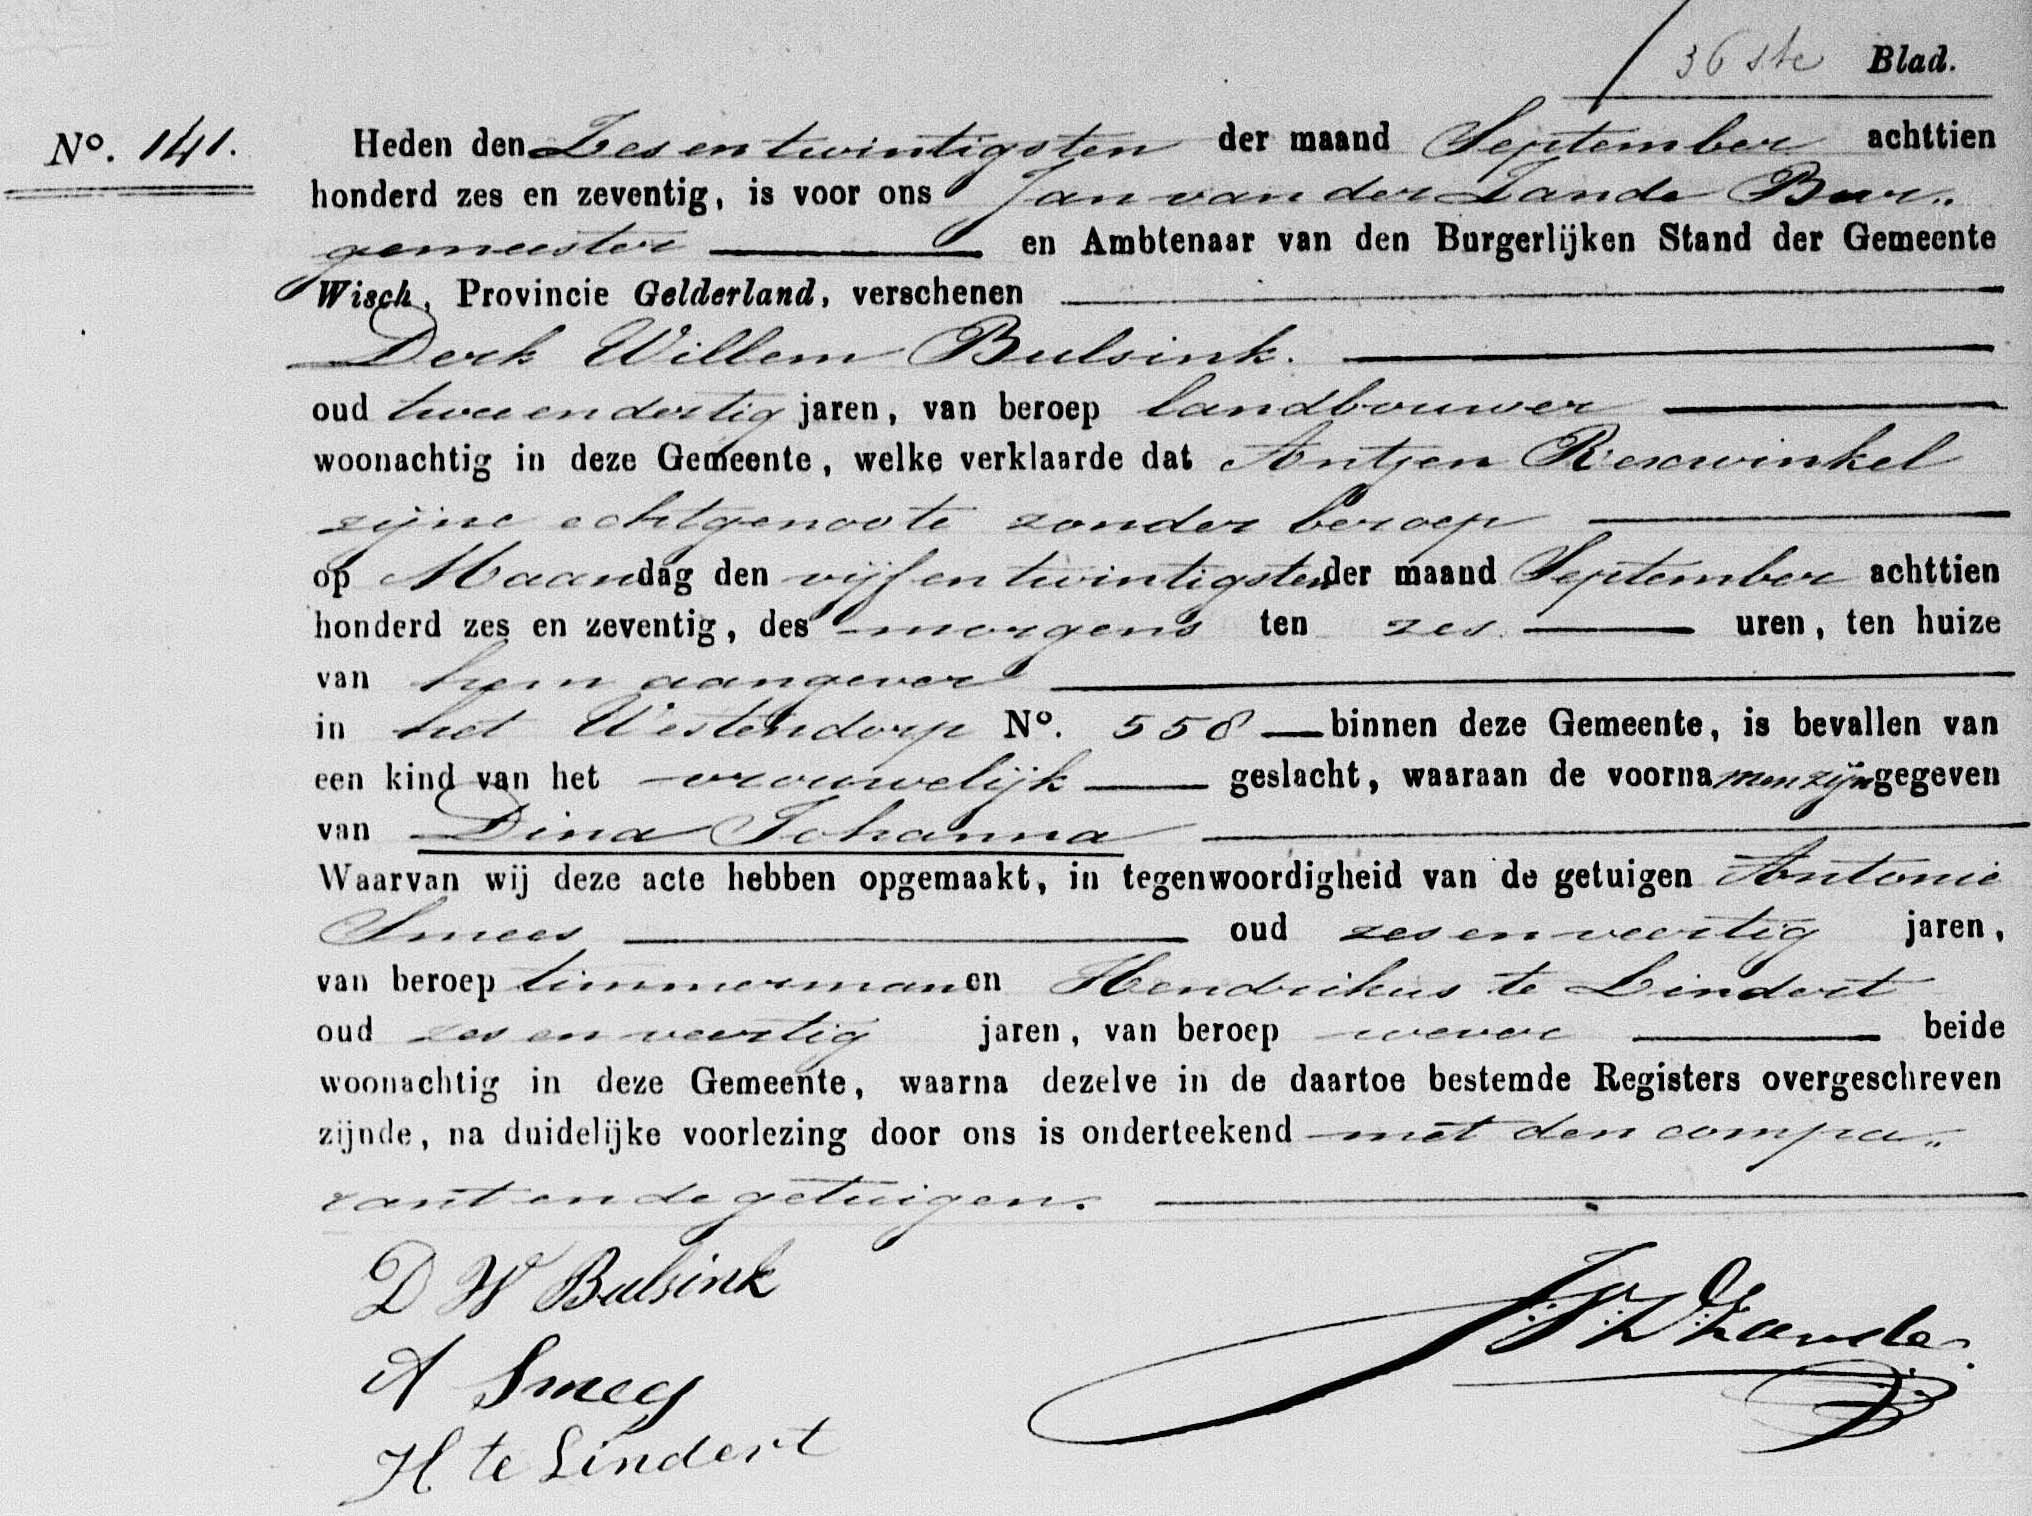 36ste Blad.
No. 141.
Heden den Zes en twintigsten der maand September achttien
honderd zes en zeventig, is voor ons Jan van der Zande Bur„
gemeester en Ambtenaar van den Burgerlijken Stand der Gemeente
Wisch, Provincie Gelderland, verschenen
Derk Willem Bulsink.
oud twee en dertig jaren, van beroep landbouwer
woonachtig in deze Gemeente, welke verklaarde dat Antjen Rexwinkel
zijne echtgenoote zonder beroep
op Maandag den vijf en twintigsten der maand September achttien
honderd zes en zeventig, des morgens ten zes uren, ten huize
van hem aangever
in het Westendorp No. 558 binnen deze Gemeente, is bevallen van
een kind van het vrouwelijk geslacht, waaraan de voornamen zijn gegeven
van Dina Johanna
Waarvan wij deze acte hebben opgemaakt, in tegenwoordigheid van de getuigen Antonie
Smees oud zes en veertig jaren,
van beroep timmerman en Hendrikus te Lindert
oud zes en veertig jaren, van beroep wever beide
woonachtig in deze Gemeente, waarna dezelve in de daartoe bestemde Registers overgeschreven
zijnde, na duidelijke voorlezing door ons is onderteekend met den compa„
rant en de getuigen.
D W Bulsink
J. V. D. Zande.
A Smees
H te Lindert